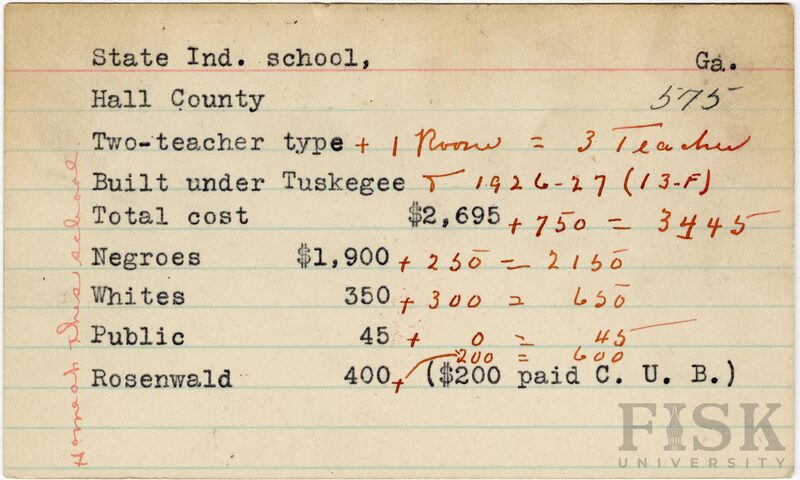 State Ind. school, Ga.
Hall County 575
Two-teacher type + 1 Room = 3 Teacher
Built under Tuskegee & 1926-27 (13-F)
Total cost $2,695 + 750 = 3445
Negroes $1,900 + 250 = 2150
Whites 350 + 300 = 650
Public 45 + 0 = 45
200 = 600
Rosenwald 400 + ($200 paid C. U. B.)
Home at this school.
FISK
UNIVERSITY